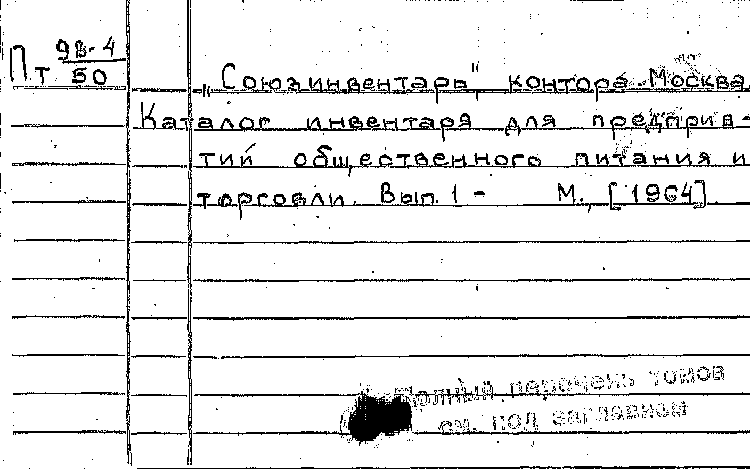 Пт 9В-4
50
„Союзинвентарь", контора. Москва.
Каталог инвентаря для предприя-
тий общественного питания и
торговли. Вып. 1 - М., [1964].
Полный перечень томов
см. под заглавием